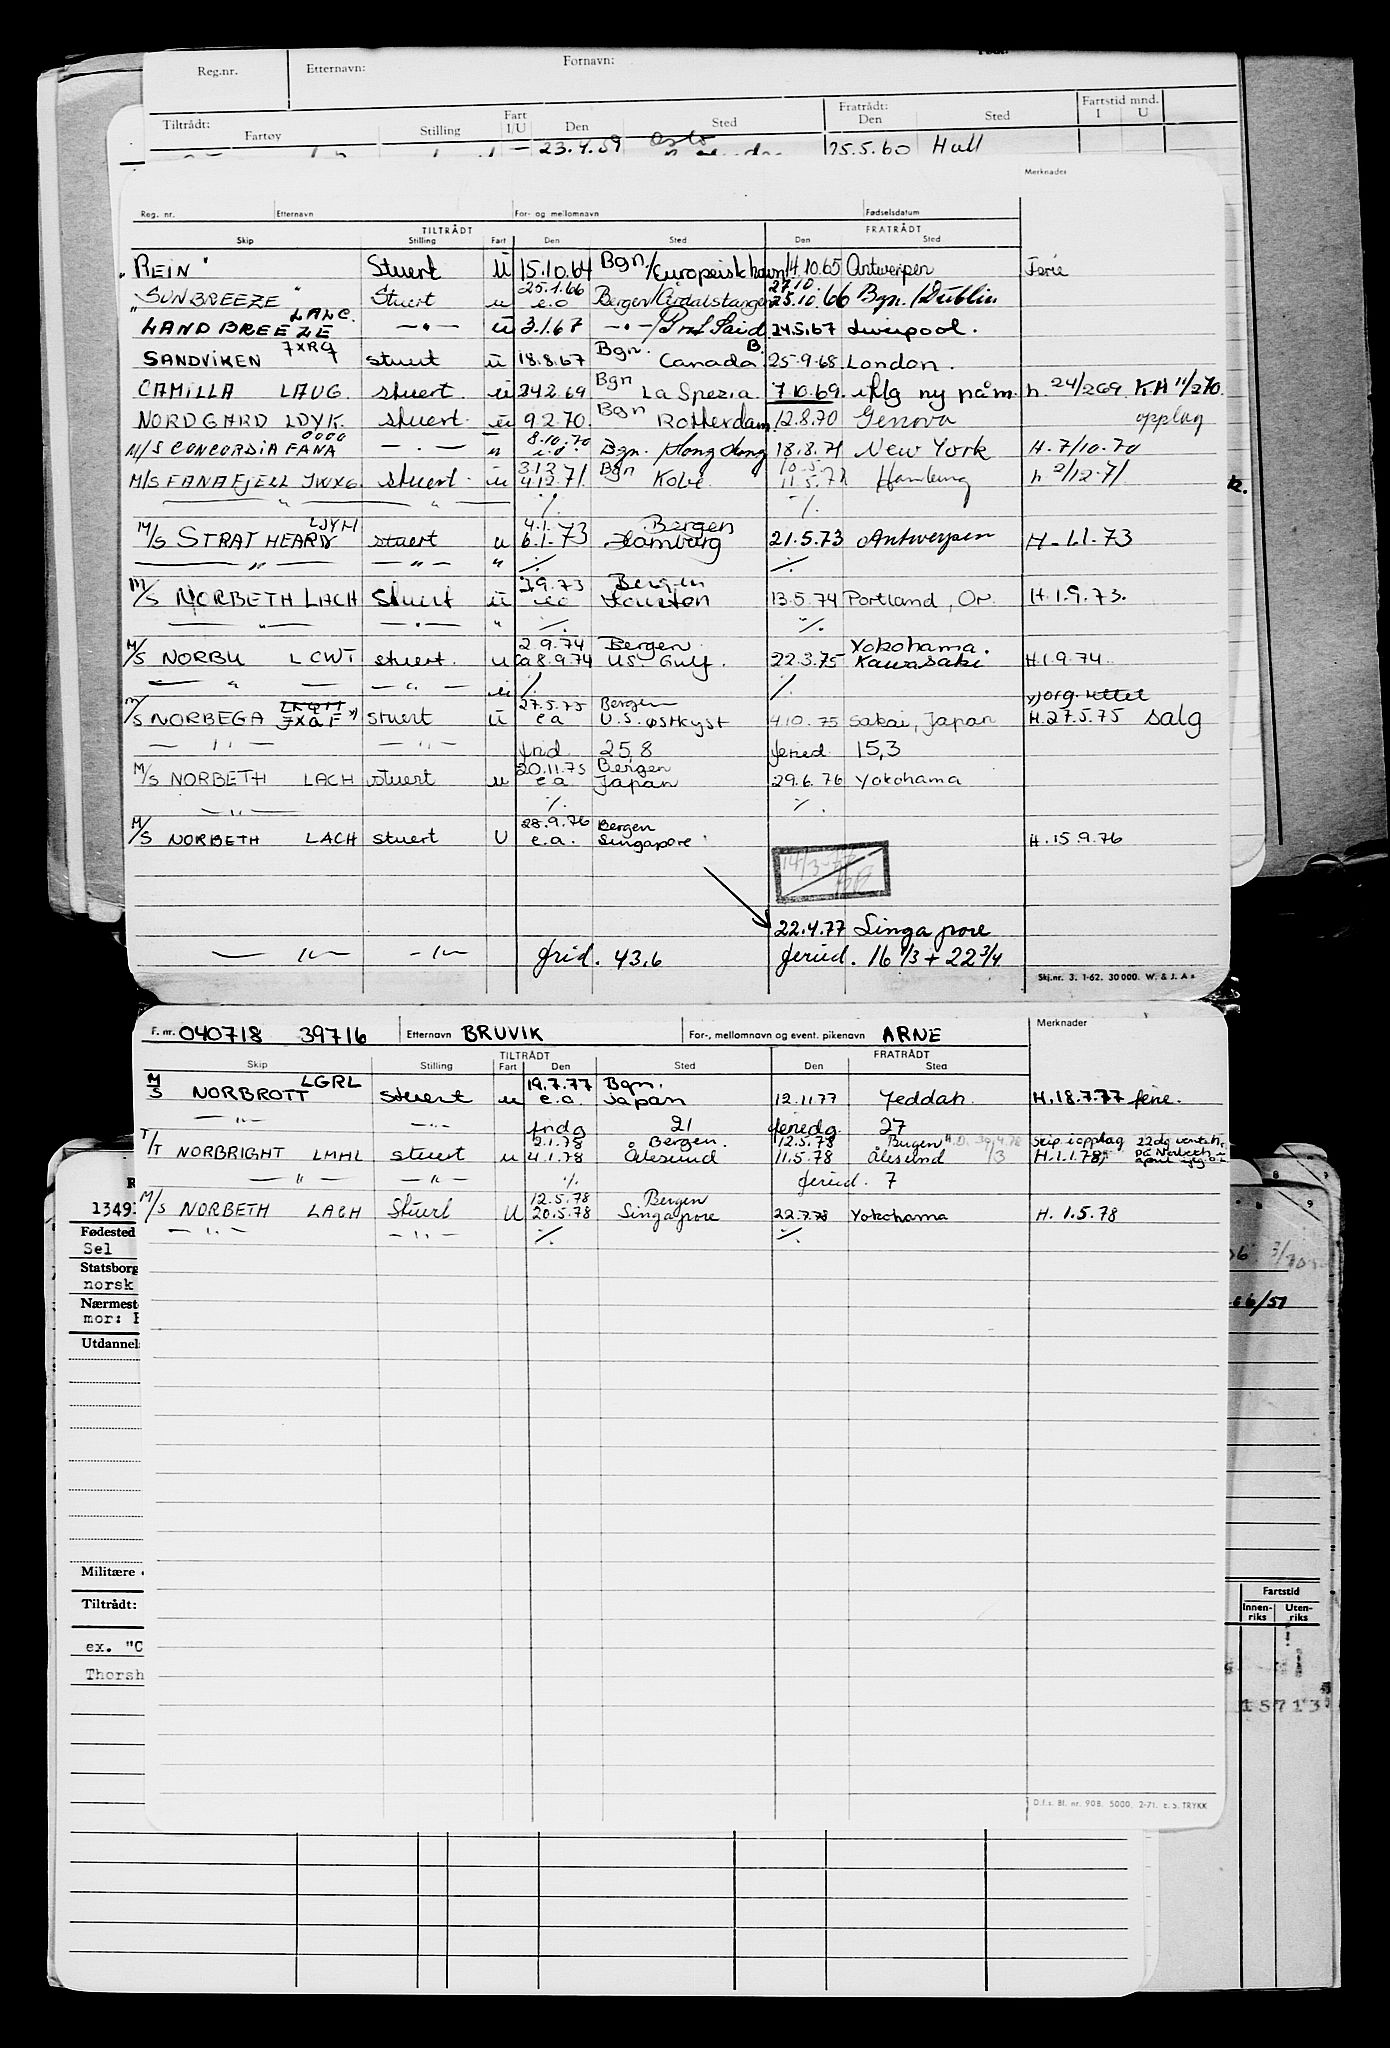 Reg.nr. Etternavn: Fornavn:
Tiltrådt: Fartøy Stilling Fart I/U Den Sted Fratrådt: Den Sted Fartstid mnd. I U
23.4.59 Oslo 25.5.60 Hull
Merknader
Reg. nr. Etternavn For- og mellomnavn Fødselsdatum
TILTRÅDT FRATRÅDT
Skip Stilling Fart Den Sted Den Sted
"REIN" Stuert u 15.10.64 Bgn/Europeisk havn 14.10.65 Antwerpen Ferie
25.1.66 27.10.
"SUNBREEZE" Stuert u e.o Bergen/Årdalstangen 25.10.66 Bgn./Dublin
LALC.
LANDBREEZE —"— u 3.1.67 —"—/Port Said 24.5.67 Liverpool.
JXRQ
SANDVIKEN stuert u 18.8.67 Bgn. Canada 25.9.68 London.
CAMILLA LAUG. stuert. u 24.2.69 Bgn La Spezia 7.10.69. ny påm. h. 24/2 69 K.H 11/2 70.
NORDGARD LDYK. stuert. u 9.2.70. Bgn Rotterdam 12.8.70 Genova opplag
8.10.70
M/S CONCORDIA FANA — " — u Bgn. Hong Kong 18.8.71 New York H. 7/10.70
3.12 10.5
M/S FANAFJELL JWXG. stuert. u 4.12.71. Bgn Kobe. 11.5.72 Hamburg h 2/12.71
" " ./. ./.
LJYM 4.1. Bergen
M/S STRATHEARN stuert u 6.1.73 Hamburg 21.5.73 Antwerpen H.
— " — — " — " ./. ./.
3.9.73 Bergen
M/S NORBETH LACH Stuert u Houston 13.5.74 Portland, Or. H.1.9.73.
— " — — " — " ./. ./.
2.9.74 Bergen Yokohama.
M/S NORBU LCWT stuert. u ca 8.9.74 US. Gulf. 22.3.75 Kawasaki H.1.9.74.
— " — — " — u ./. ./.
27.5.75 Bergen
M/S NORBEGA JXQF x) stuert u e.a U.S. østkyst 4.10.75 Sakai, Japan H.27.5.75 salg
— " — — " — frid. 25,8 feried 15,3
20.11.75 Bergen
M/S NORBETH LACH stuert u e.a Japan 29.6.76 Yokohama
— " — ./. ./.
28.9.76 Bergen
M/S NORBETH LACH stuert U e.a. Singapore H.15.9.76
22.4.77 Singapore
— " — — " — frid. 43,6 feried. 16 1/3 + 22 3/4
Skj.nr. 3. 1-62. 30000. W. & J. A s
F. nr. 040718 39716 Etternavn BRUVIK For-, mellomnavn og event. pikenavn ARNE Merknader
TILTRÅDT FRATRÅDT
Skip Stilling Fart Den Sted Den Sted
LGRL 19.7.77 Bgn.
M/S NORBROTT stuert u e.a. Japan 12.11.77 Jeddah. H.18.7.77 ferie.
— " — — " — fridg 21 feriedg. 27
2.1.78 Bergen. 12.5.78 Bergen skip i opplag
T/T NORBRIGHT LMHL stuert u 4.1.78 Ålesund 11.5.78 Ålesund H.1.1.78
— " — — " — ./. feried. 7
12.5.78 Bergen
M/S NORBETH LACH Stuert U 20.5.78 Singapore 22.7.78 Yokohama H. 1.5.78
— " — — " — ./. ./.
D.f.s. Bl. nr. 90B. 5000. 2-71. E. S. TRYKK
Fødested
Sel
Statsborg
norsk
Nærmest
mor:
Utdannel
Militære
Tiltrådt:
ex. "C
Thorsh
Fartstid
Innenriks Utenriks